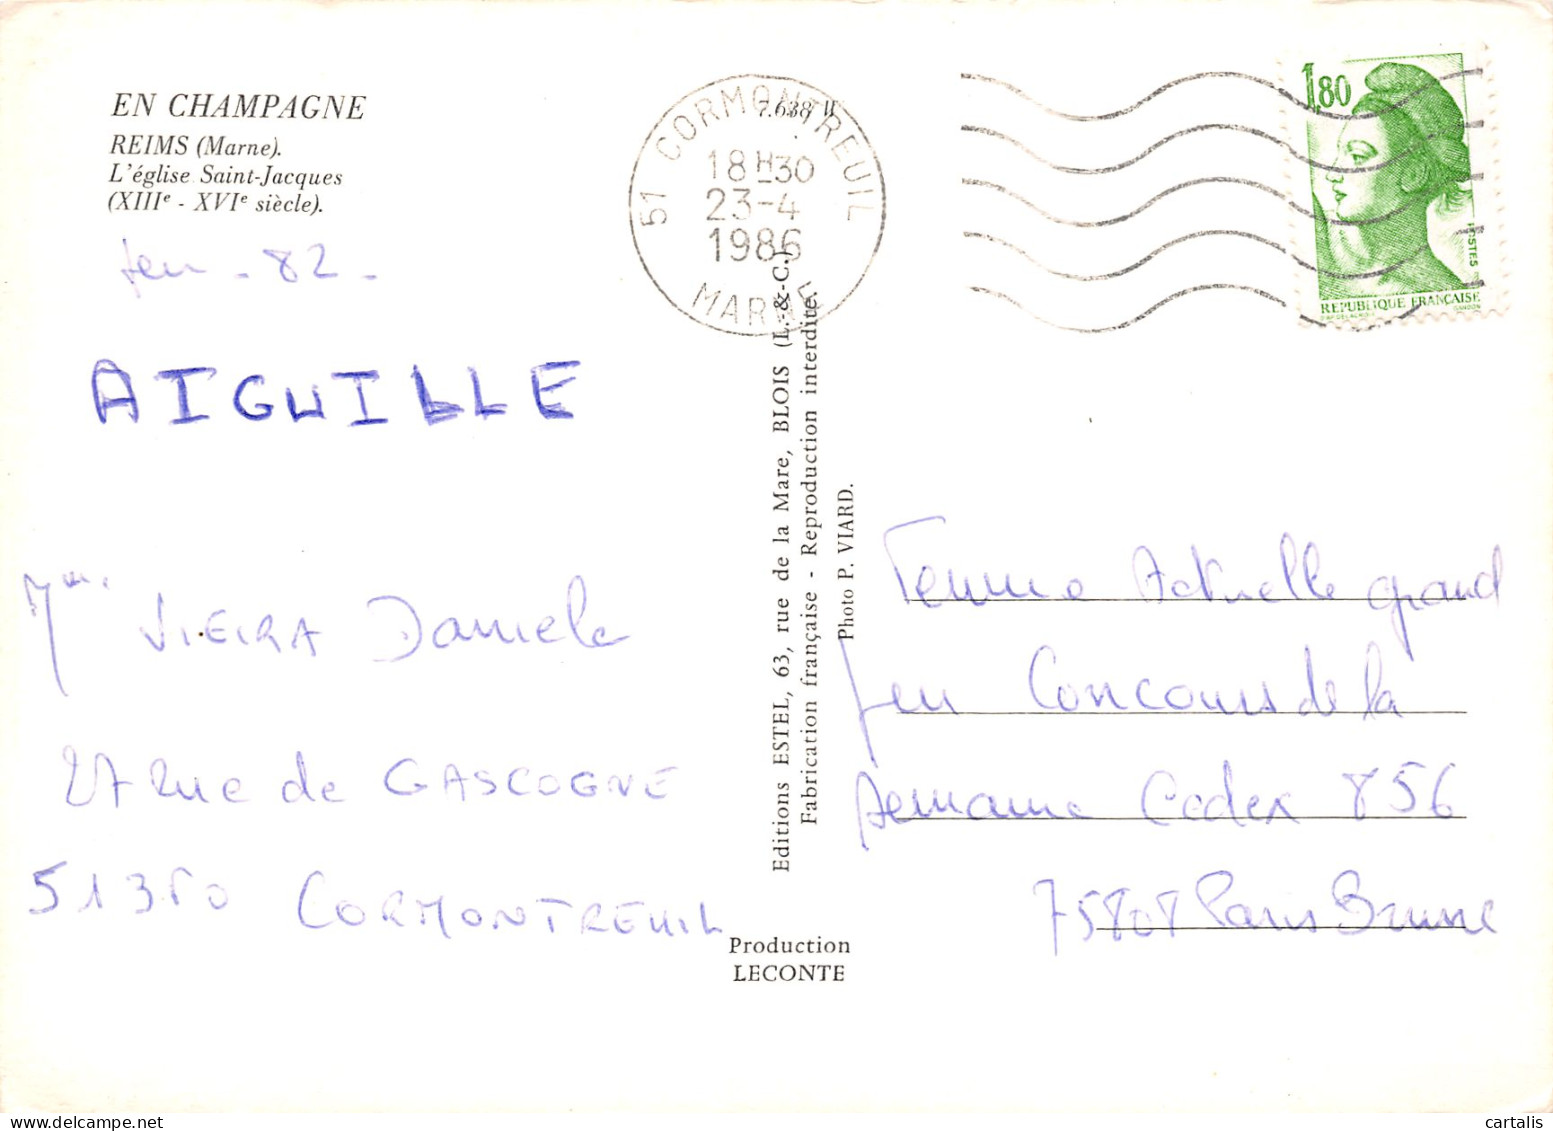 EN CHAMPAGNE
REIMS (Marne).
L'église Saint-Jacques
(XIIIe - XVIe siècle).
7.638 W
51 CORMONTREUIL
18H30
23-4
1986
MARNE
1,80
POSTES
REPUBLIQUE FRANÇAISE
Jeu - 82 -
AIGUILLE
Mme VIEIRA Daniele
27 Rue de GASCOGNE
51350 CORMONTREUIL
Editions ESTEL, 63, rue de la Mare, BLOIS (L.-&-C.)
Fabrication française - Reproduction interdite.
Photo P. VIARD.
Production
LECONTE
Femme Actuelle grand
Jeu Concours de la
semaine Cedex 856
75808 Paris Brune
© cartalis